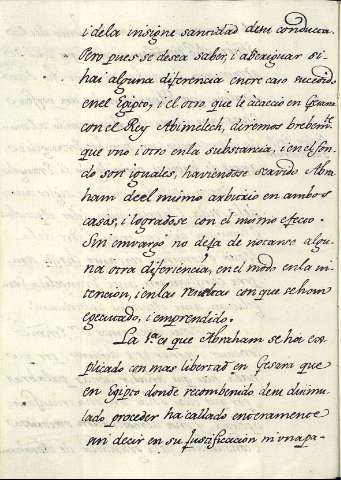 i de la insigne santidad de su conducta.
Pero pues se desea saber, i aberiguar si
hai alguna diferencia entre caso sucedido
en el Egipto, i el otro que le acaeció en Gerara
con el Rey Abimelech, diremos brebemte.
que uno i otro en la substancia, i en el fon-
do son iguales, haviendose servido Abra-
ham de el mismo arbitrio en ambos
casos, i logradose con el mismo efecto.
Sin emvargo no deja de notarse algu-
na otra diferiencia, en el modo en la in-
tencion, i en las resultas con que se han
egecutado, i emprendido.
La 1a. es que Abraham se ha ex
plicado con mas libertad en Gerara que
en Egipto donde recombenido de su disimu-
lado proceder ha callado enteramente
sin decir en su justificacion ni una pa-